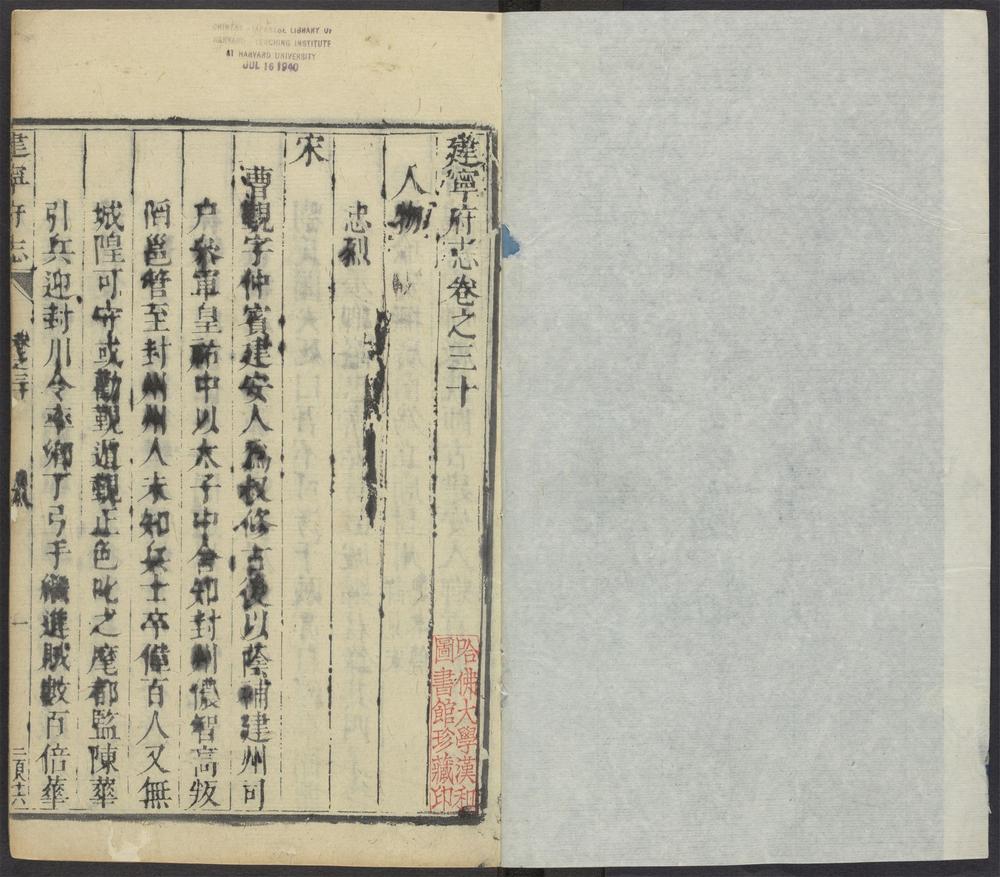 CHINESE JAPANESE LIBRARY OF
HARVARD YENCHING INSTITUTE
AT HARVARD UNIVERSITY
JUL 16 1940
建寧府志卷之三十
人物
忠烈
宋
曹覲字仲賓建安人爲叔修古後以蔭補建州司
户叅軍皇祐中以太子中舍知封州儂智高叛
陷邕管至封州州人未知兵士卒僅百人又無
城隍可守或勸覲遁覲正色叱之麾都監陳華
引兵迎封川令率鄉丁弓手繼進賊數百倍華
建寧府志
卷之三十
一
哈佛大學漢和
圖書館珍藏印